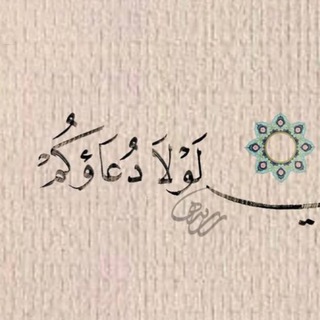 لَوْلَا دُعَاؤُكُمْ